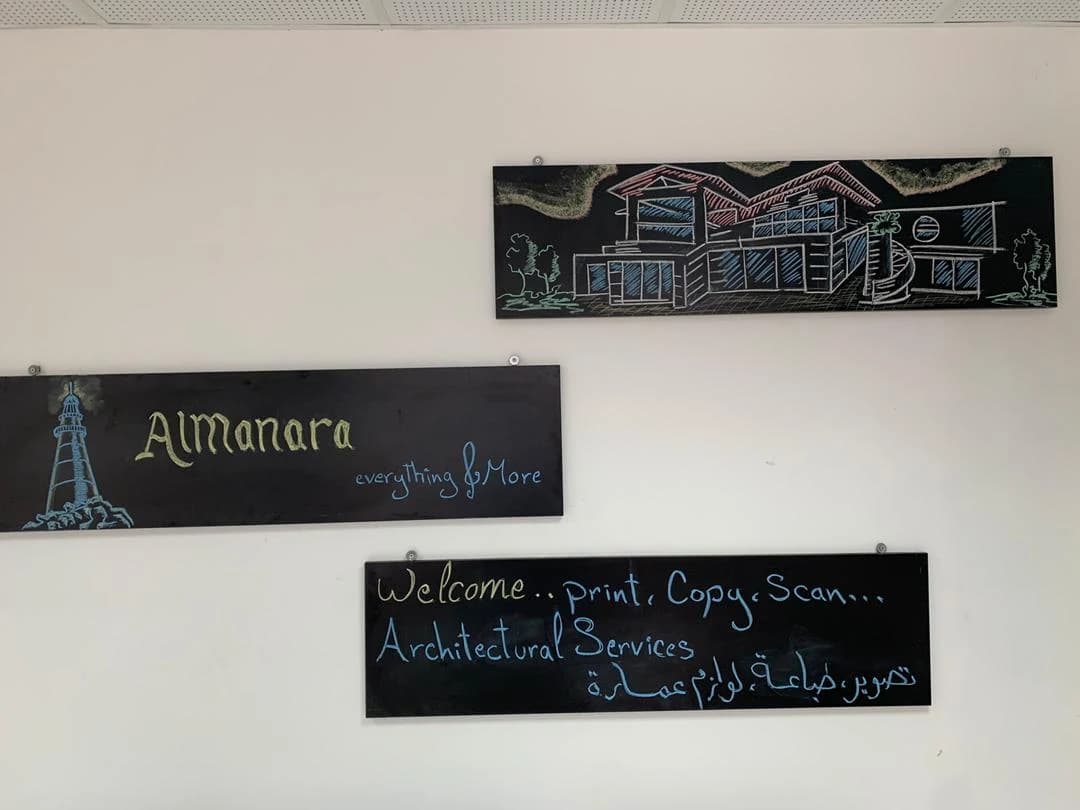 AlManara
everything & More
Welcome.. print, Copy, Scan...
Architectural Services
تصوير، طباعة، لوازم عمارة